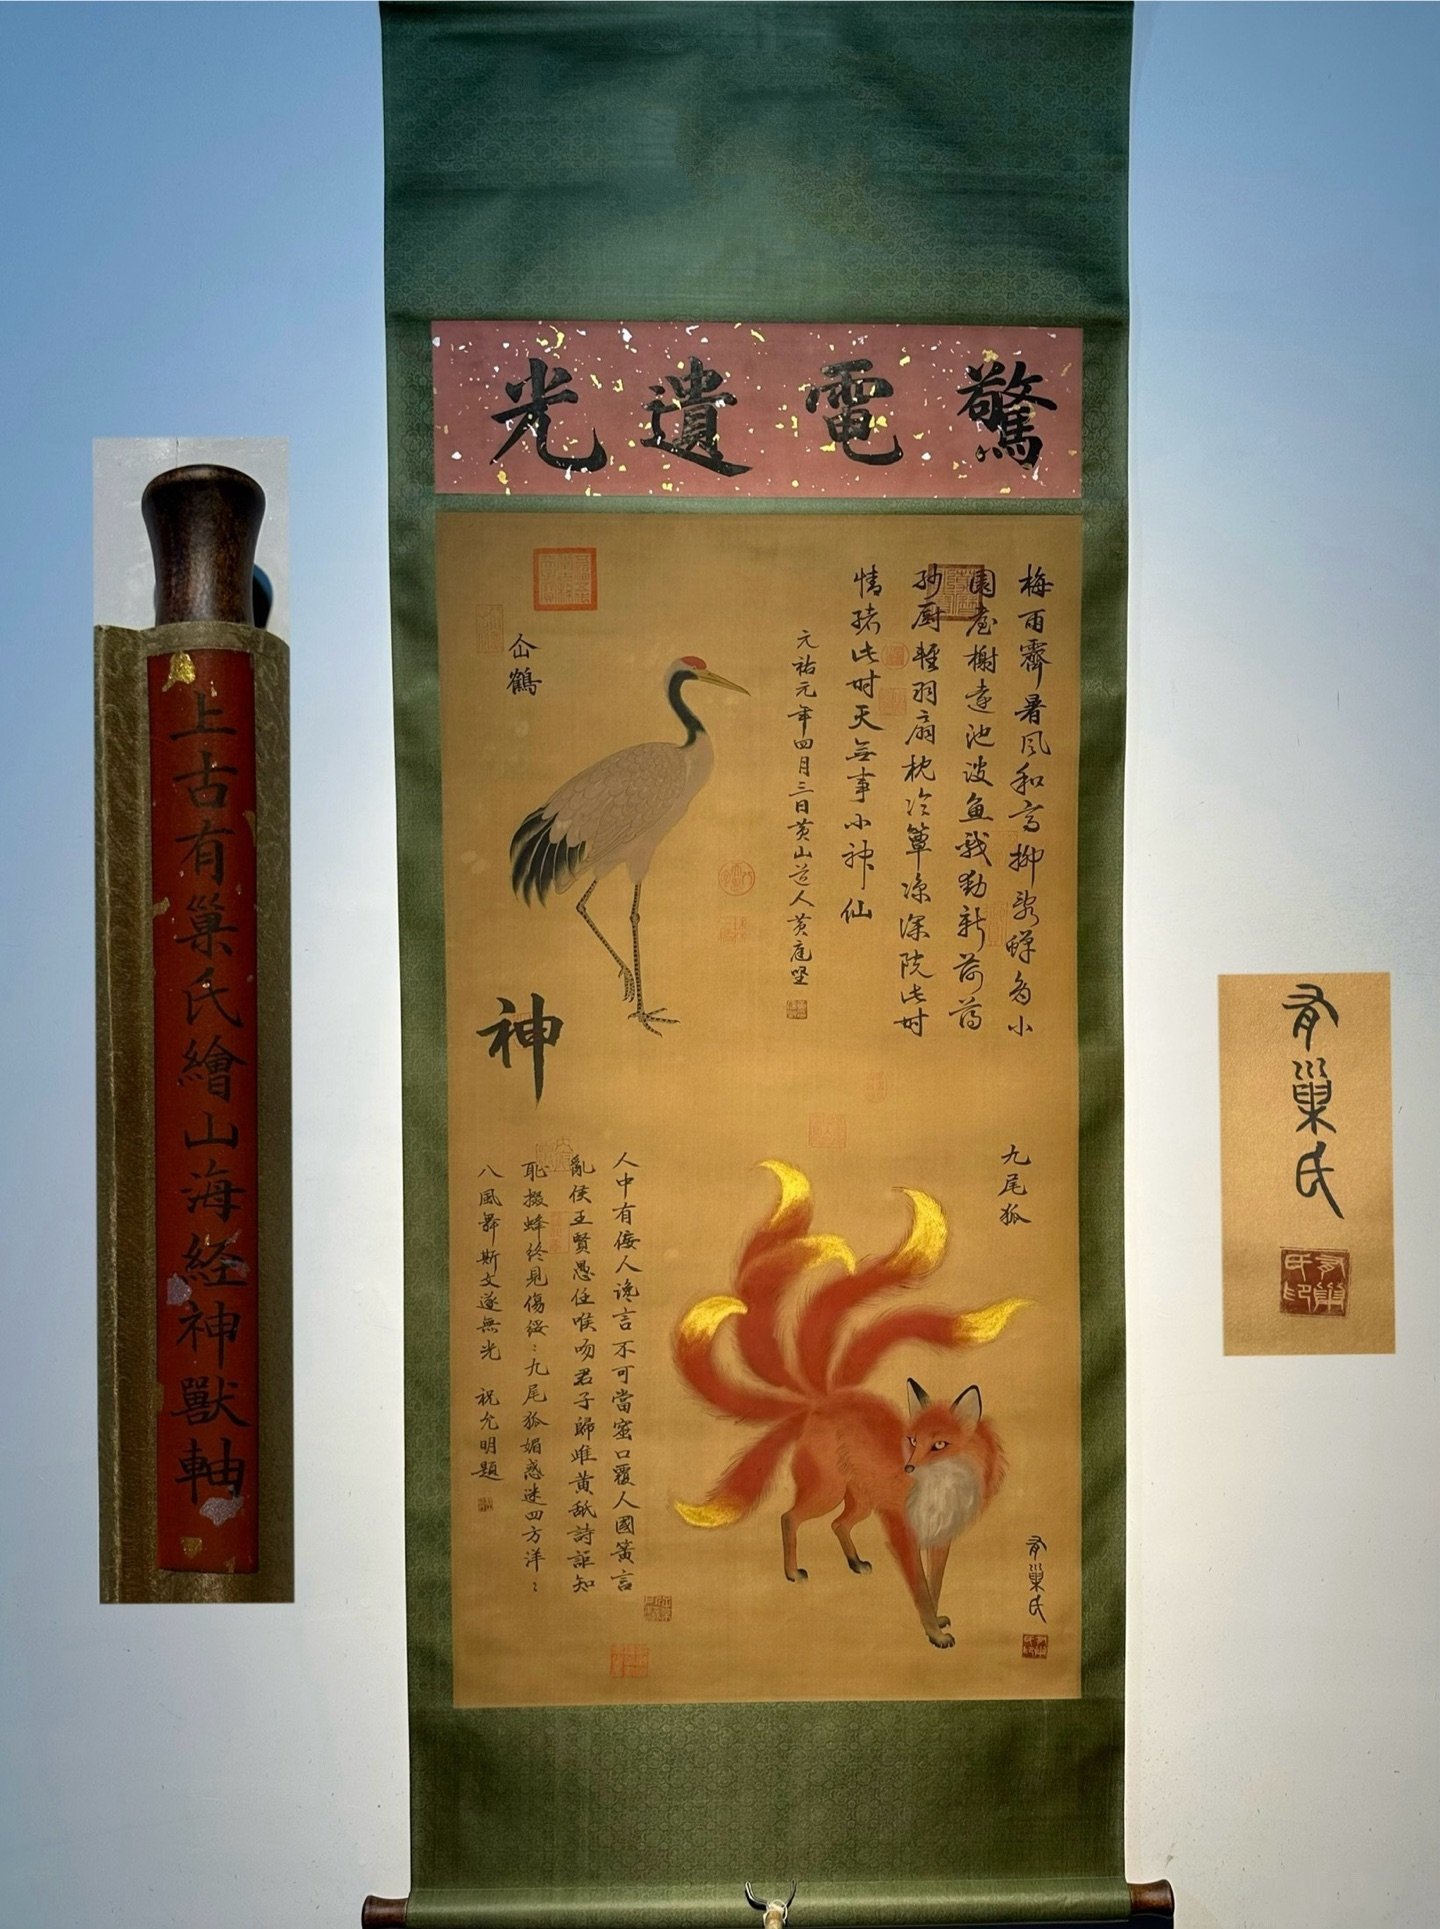 驚電遺光
梅雨霽暑風和高柳亂蟬多小
園臺榭遠池波魚戲動新荷薄
紗厨輕羽扇枕冷簟凉深院此时
情绪此时天無事小神仙
元祐元年四月三日黄山道人黄庭坚
仚鶴
神
九尾狐
人中有倭人谗言不可當蜜口覆人國簧言
亂侯王賢愚任喉吻君子歸雌黄舐詩詎知
耻掇蜂终見傷绥〻九尾狐媚惑迷四方洋〻
八風舞斯文遂無光 祝允明題
有巢氏
上古有巢氏繪山海经神獸軸
有巢氏
有巢氏印